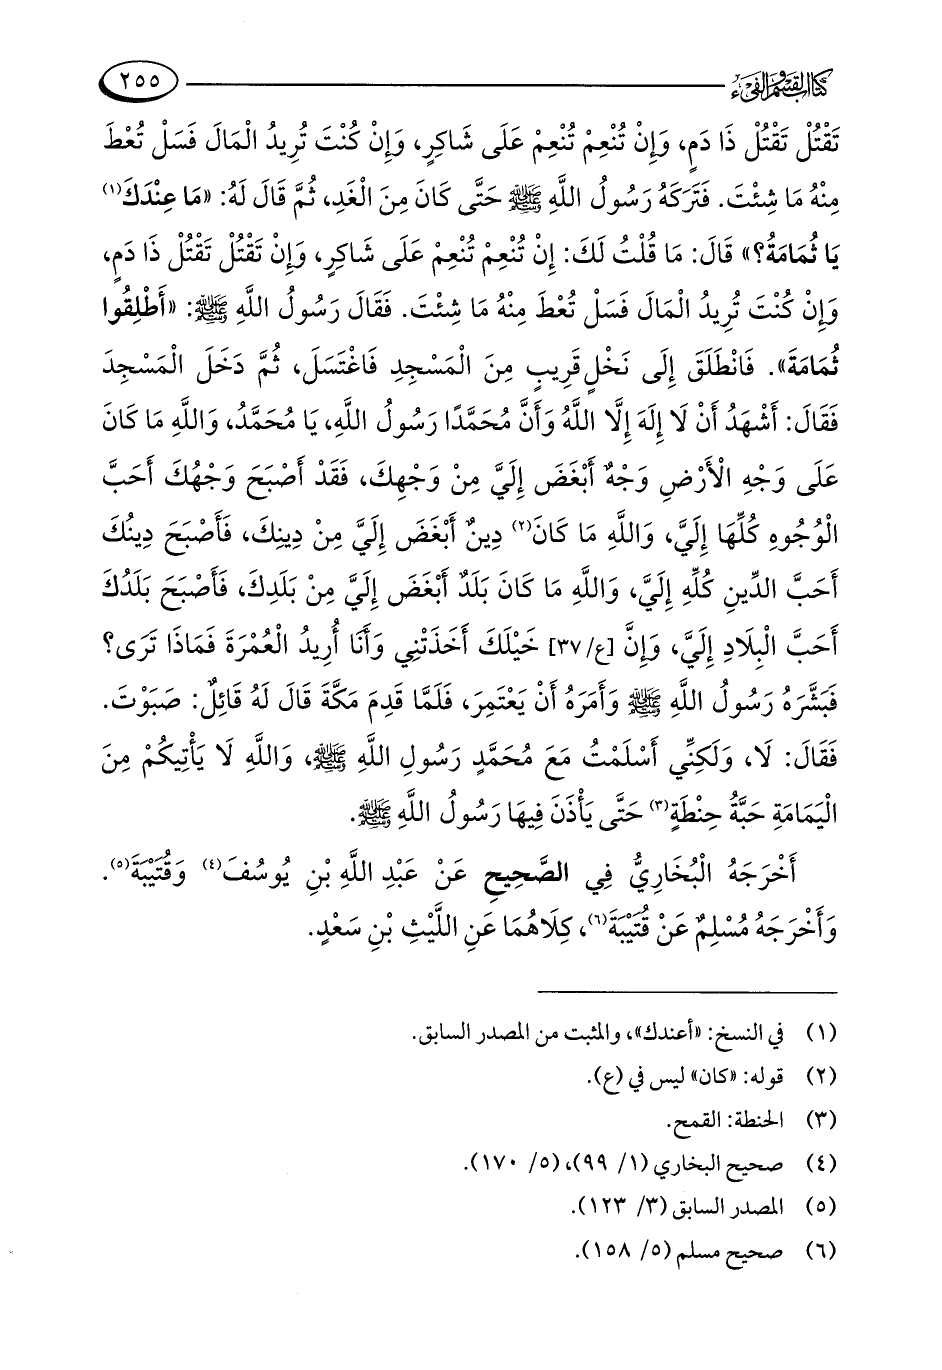 كتاب القسم والفيء ٢٥٥
تَقْتُلْ تَقْتُلْ ذَا دَمٍ، وَإِنْ تُنْعِمْ تُنْعِمْ عَلَى شَاكِرٍ، وَإِنْ كُنْتَ تُرِيدُ الْمَالَ فَسَلْ تُعْطَ
مِنْهُ مَا شِئْتَ. فَتَرَكَهُ رَسُولُ اللَّهِ ﷺ حَتَّى كَانَ مِنَ الْغَدِ، ثُمَّ قَالَ لَهُ: «مَا عِنْدَكَ(١)
يَا ثُمَامَةُ؟» قَالَ: مَا قُلْتُ لَكَ: إِنْ تُنْعِمْ تُنْعِمْ عَلَى شَاكِرٍ، وَإِنْ تَقْتُلْ تَقْتُلْ ذَا دَمٍ،
وَإِنْ كُنْتَ تُرِيدُ الْمَالَ فَسَلْ تُعْطَ مِنْهُ مَا شِئْتَ. فَقَالَ رَسُولُ اللَّهِ ﷺ: «أَطْلِقُوا
ثُمَامَةَ». فَانْطَلَقَ إِلَى نَخْلٍ قَرِيبٍ مِنَ الْمَسْجِدِ فَاغْتَسَلَ، ثُمَّ دَخَلَ الْمَسْجِدَ
فَقَالَ: أَشْهَدُ أَنْ لَا إِلَهَ إِلَّا اللَّهُ وَأَنَّ مُحَمَّدًا رَسُولُ اللَّهِ، يَا مُحَمَّدُ، وَاللَّهِ مَا كَانَ
عَلَى وَجْهِ الْأَرْضِ وَجْهٌ أَبْغَضَ إِلَيَّ مِنْ وَجْهِكَ، فَقَدْ أَصْبَحَ وَجْهُكَ أَحَبَّ
الْوُجُوهِ كُلِّهَا إِلَيَّ، وَاللَّهِ مَا كَانَ(٢) دِينٌ أَبْغَضَ إِلَيَّ مِنْ دِينِكَ، فَأَصْبَحَ دِينُكَ
أَحَبَّ الدِّينِ كُلِّهِ إِلَيَّ، وَاللَّهِ مَا كَانَ بَلَدٌ أَبْغَضَ إِلَيَّ مِنْ بَلَدِكَ، فَأَصْبَحَ بَلَدُكَ
أَحَبَّ الْبِلَادِ إِلَيَّ، وَإِنَّ [ع/٣٧] خَيْلَكَ أَخَذَتْنِي وَأَنَا أُرِيدُ الْعُمْرَةَ فَمَاذَا تَرَى؟
فَبَشَّرَهُ رَسُولُ اللَّهِ ﷺ وَأَمَرَهُ أَنْ يَعْتَمِرَ، فَلَمَّا قَدِمَ مَكَّةَ قَالَ لَهُ قَائِلٌ: صَبَوْتَ.
فَقَالَ: لَا، وَلَكِنِّي أَسْلَمْتُ مَعَ مُحَمَّدٍ رَسُولِ اللَّهِ ﷺ، وَاللَّهِ لَا يَأْتِيكُمْ مِنَ
الْيَمَامَةِ حَبَّةُ حِنْطَةٍ(٣) حَتَّى يَأْذَنَ فِيهَا رَسُولُ اللَّهِ ﷺ.
أَخْرَجَهُ الْبُخَارِيُّ فِي الصَّحِيحِ عَنْ عَبْدِ اللَّهِ بْنِ يُوسُفَ(٤) وَقُتَيْبَةَ(٥).
وَأَخْرَجَهُ مُسْلِمٌ عَنْ قُتَيْبَةَ(٦)، كِلَاهُمَا عَنِ اللَّيْثِ بْنِ سَعْدٍ.
(١) في النسخ: «أعندك»، والمثبت من المصدر السابق.
(٢) قوله: «كان» ليس في (ع).
(٣) الحنطة: القمح.
(٤) صحيح البخاري (١/ ٩٩)، (٥/ ١٧٠).
(٥) المصدر السابق (٣/ ١٢٣).
(٦) صحيح مسلم (٥/ ١٥٨).